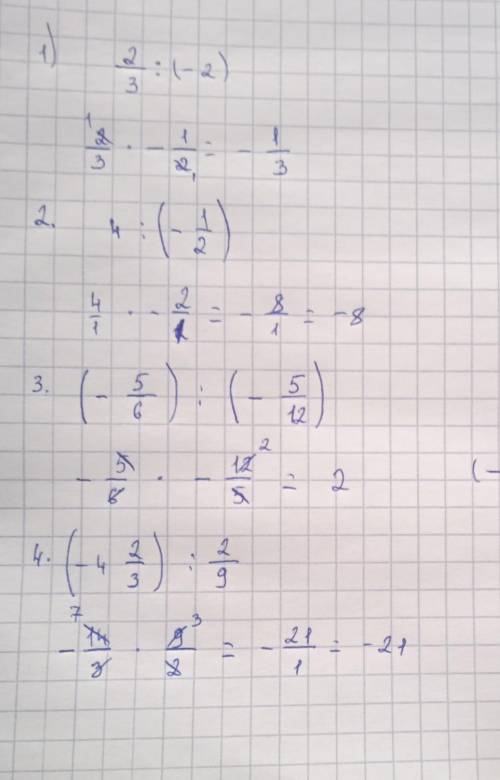 1) 2/3 : (-2)
1 2/3 · - 1/2 1 = - 1/3
2. 4 : (- 1/2)
4/1 · - 2/1 = - 8/1 = -8
3. (- 5/6) : (- 5/12)
- 5/6 · - 12/5 2 = 2
(-
4. (-4 2/3) : 2/9
- 7 14/3 · 9/2 3 = - 21/1 = -21